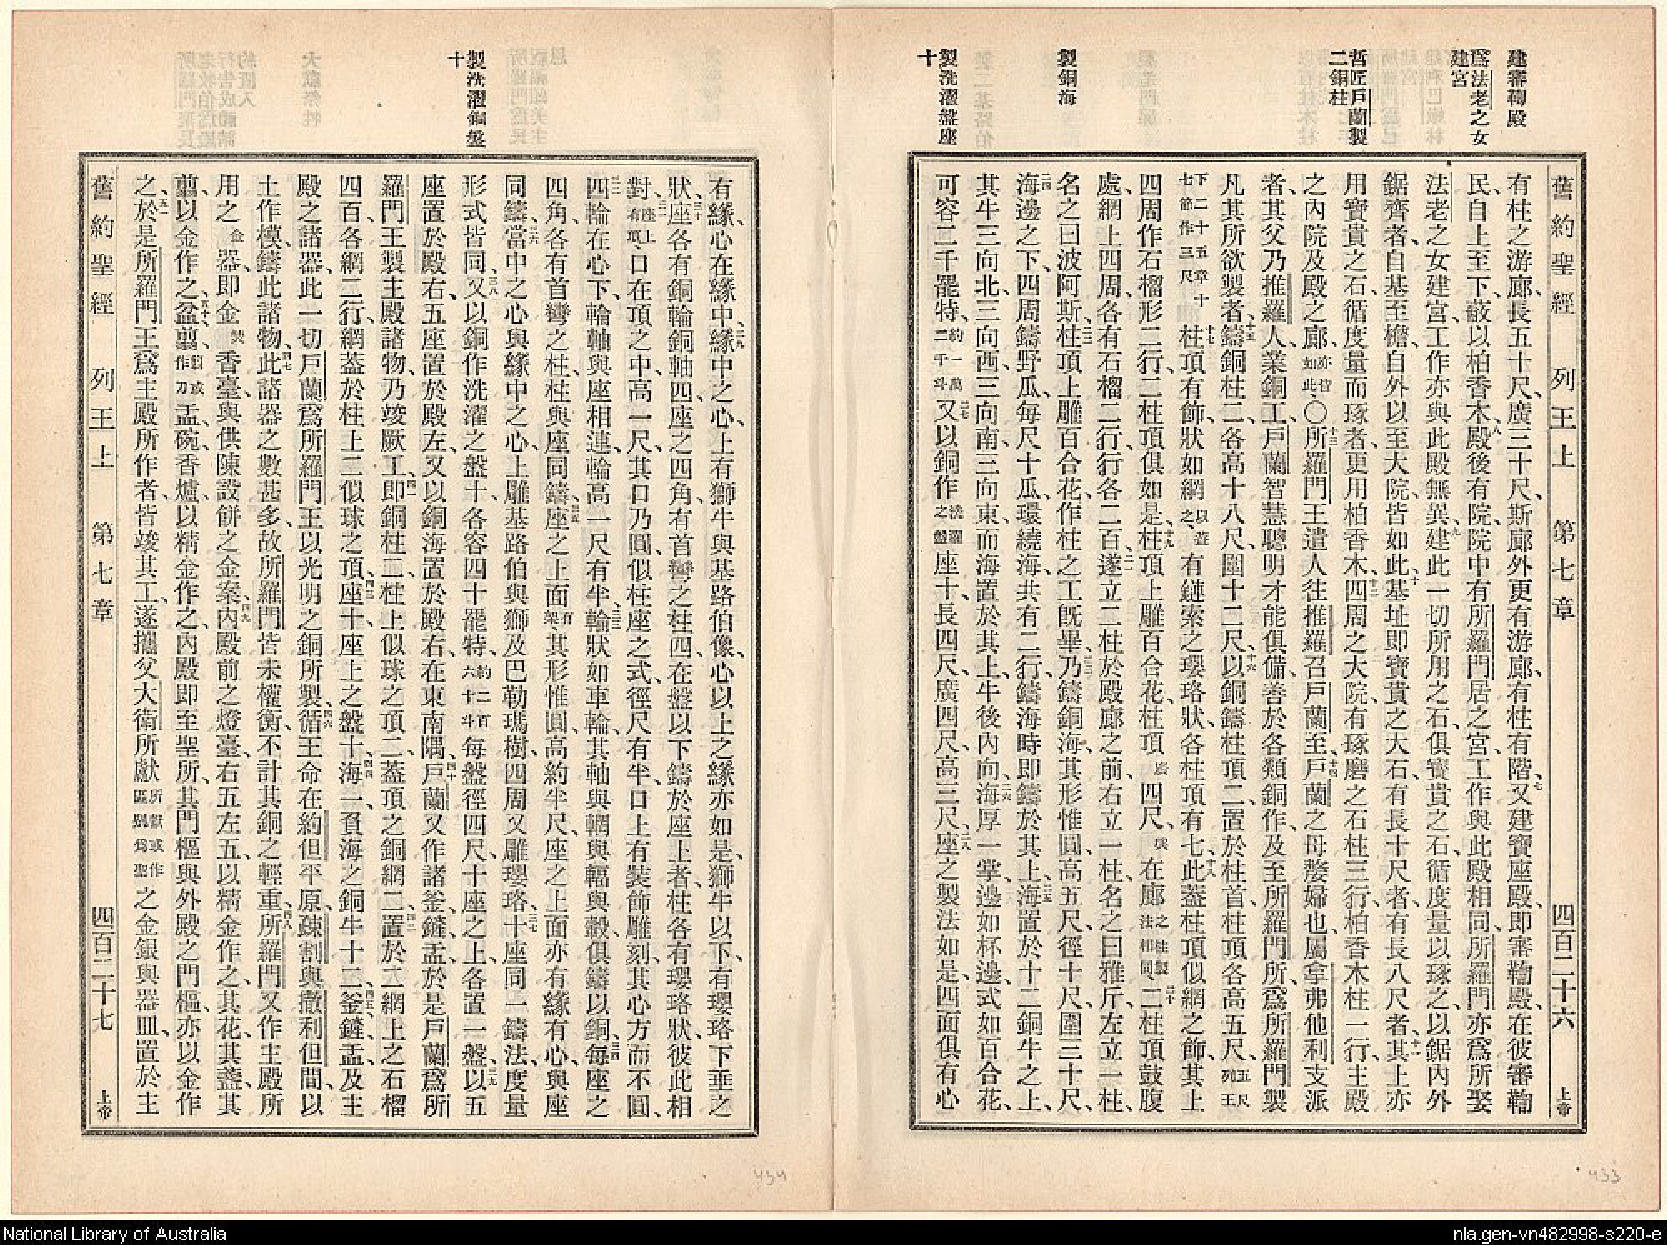 建審鞫殿
爲法老之女
建宮
哲匠戶蘭製
二銅柱
製銅海
製洗濯盤座
十
舊約聖經 列王上 第七章 四百二十六 上帝
有柱之游廊、長五十尺、廣三十尺、斯廊外更有游廊、有柱有階、七又建寶座殿、即審鞫殿、在彼審鞫
民、自上至下、蔽以柏香木、八殿後有院、院中有所羅門居之宮、工作與此殿相同、所羅門亦爲所娶
法老之女建宮、工作亦與此殿無異、九建此一切所用之石、俱寶貴之石、循度量以琢之、以鋸內外
鋸齊者、自基至檐、自外以至大院、皆如此、十基址即寶貴之大石、有長十尺者、有長八尺者、十一其上亦
用寶貴之石、循度量而琢者、更用柏香木、十二四周之大院、有琢磨之石柱三行、柏香木柱一行、主殿
之內院及殿之廊、亦皆如此、〇十三所羅門王遣人往推羅召戶蘭至、十四戶蘭之母嫠婦也、屬拿弗他利支派
者、其父乃推羅人、業銅工、戶蘭智慧聰明才能俱備、善於各類銅作、及至所羅門所、爲所羅門製
凡其所欲製者、十五鑄銅柱二、各高十八尺、圍十二尺、十六以銅鑄柱頂二、置於柱首、柱頂各高五尺、五尺列王
下二十五章十七節作三尺十七柱頂有飾、狀如網、以蓋之、有鏈索之瓔珞狀、各柱頂有七、十八此蓋柱頂似網之飾、其上
四周作石榴形二行、二柱頂俱如是、十九柱頂上雕百合花、柱頂四尺、在廊之柱製法相同、二十二柱頂鼓腹
處、網上四周、各有石榴二行、行各二百、二一遂立二柱於殿廊之前、右立一柱、名之曰雅斤、左立一柱、
名之曰波阿斯、二二柱頂上雕百合花、作柱之工旣畢、二三乃鑄銅海、其形惟圓、高五尺、徑十尺、圍三十尺、
二四海邊之下、四周鑄野瓜、每尺十瓜、環繞海、共有二行、鑄海時即鑄於其上、二五海置於十二銅牛之上、
其牛三向北、三向西、三向南、三向東、而海置於其上、牛後內向、二六海厚一掌、邊如杯邊、式如百合花、
可容二千罷特、約一萬二千斗二七又以銅作洗濯之盤座十、長四尺、廣四尺、高三尺、二八座之製法如是、四面俱有心、
製洗濯銅盤
十
有緣、心在緣中、二九緣中之心上、有獅牛與基路伯像、心以上之緣亦如是、獅牛以下、有瓔珞下垂之
狀、三十座各有銅輪銅軸四、座之四角、有首彎之柱四、在盤以下、鑄於座上者、柱各有瓔珞狀、彼此相
對、三一座上有項、口在頂之中、高一尺、其口乃圓、似柱座之式、徑尺有半、口上有裝飾雕刻、其心方而不圓、
三二四輪在心下、輪軸與座相連、輪高一尺有半、三三輪狀如車輪、其軸與輞與輻與轂、俱鑄以銅、三四每座之
四角、各有首彎之柱、柱與座同鑄、三五座之上面有架、其形惟圓、高約半尺、座之上面亦有緣有心、與座
同鑄、三六當中之心與緣中之心上、雕基路伯與獅及巴勒瑪樹、四周又雕瓔珞、三七十座同一鑄法、度量
形式皆同、三八又以銅作洗濯之盤十、各容四十罷特、約二百六十斗每盤徑四尺、十座之上、各置一盤、三九以五
座置於殿右、五座置於殿左、又以銅海置於殿右、在東南隅、四十戶蘭又作諸釜鏟盂、於是戶蘭爲所
羅門王製主殿諸物、乃竣厥工、四一即銅柱二、柱上似球之頂二、蓋頂之銅網二、四二置於二網上之石榴
四百、各網二行、網蓋於柱上二似球之頂、四三座十、座上之盤十、四四海一、負海之銅牛十二、四五釜鏟盂、及主
殿之諸器、此一切戶蘭爲所羅門王以光明之銅所製、四六循王命在約但平原、疎割與撒利但間、以
土作模、鑄此諸物、四七此諸器之數甚多、故所羅門皆未權衡、不計其銅之輕重、四八所羅門又作主殿所
用之金器、即金香臺、與供陳設餅之金案、四九內殿前之燈臺、右五左五、以精金作之、其花其盞其
翦、以金作之、五十盆、翦、盂、碗、香爐、以精金作之、內殿即至聖所、其門樞與外殿之門樞、亦以金作
之、五一於是所羅門王爲主殿所作者、皆竣其工、遂攜父大衛所獻所獻或作區別爲聖之金銀與器皿、置於主
舊約聖經 列王上 第七章 四百二十七 上帝
434
433
National Library of Australia
nla.gen-vn482998-s220-e